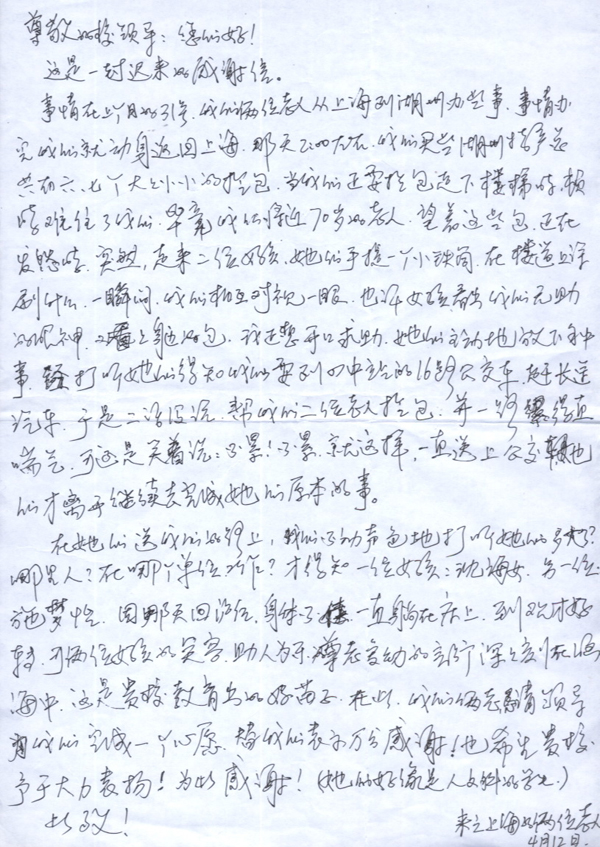 尊敬的校领导：您们好！
这是一封迟来的感谢信。
事情在上个月的31号，我们俩位老人从上海到湖州办些事，事情办
完我们就动身返回上海，那天下的大在，我们买些湖州特产总
共有六、七个大大小小的拎包，当我们还要拎包走下楼梯时，顿
时难住了我们，毕竟我们将近70岁的老人，望着这些包，正在
发愁时，突然，走来二位女孩，她们手提一个小铁筒，在楼道上涂
刷什么，一瞬间，我们相互对视一眼，也许女孩看出我们无助
的眼神，又看上身边的包，我还想开口求助，她们主动地放下手中
事，打听她们得知我们要到中站的16路公交车，赶长途
汽车，于是二话没说，帮我们二位老人拎包，并一路累得直
喘气，可还是笑着说：不累！不累，就这样，一直送上公交车她
们才离开继续去完成她们原本的事。
在她们送我们的路上，我们不动声色地打听她们多大了？
哪里人？在哪个单位工作？才得知一位女孩：沈海女，另一位
施梦恺，因那天回沪后，身体不佳，一直躺在床上，到现在才好
转，可俩位女孩的笑容，助人为乐，尊老爱幼的言行深深刻在脑
海中，这是贵校教育出的好苗子，在此，我们俩老恳请领导
为我们完成一个心愿，替我们表示万分感谢！也希望贵校
予于大力表扬！为此感谢！（她们好像是人文科的学生）
此致！
来之上海的俩位老人
4月12日．